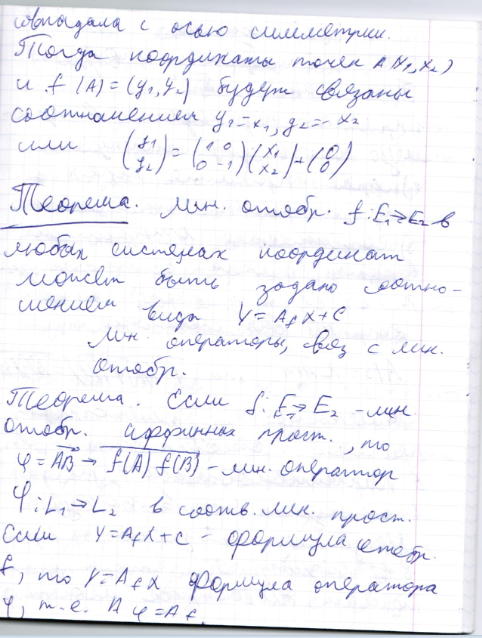 совпадала с осью симметрии.
Тогда координаты точек A(x₁, x₂)
и f(A)=(y₁, y₂) будут связаны
соотношением y₁=x₁, y₂=-x₂
или (y₁ y₂) = (1 0 0 -1)(x₁ x₂)+(0 0)
Теорема. Лин. отобр. f: E₁→E₂ в
любых системах координат
может быть задано соотно-
шением вида Y=A_f X+C
Лин. операторы, связ с лин.
отобр.
Теорема. Если f: E₁→E₂ -лин
отобр. аффинных прост., то
φ=AB→f(A)f(B) - лин. оператор
φ: L₁→L₂ в соотв. лин. прост.
Если Y=A_f X+C - формула отобр.
f, то Y=A_f X формула оператора
φ, т.е. A_φ=A_f.